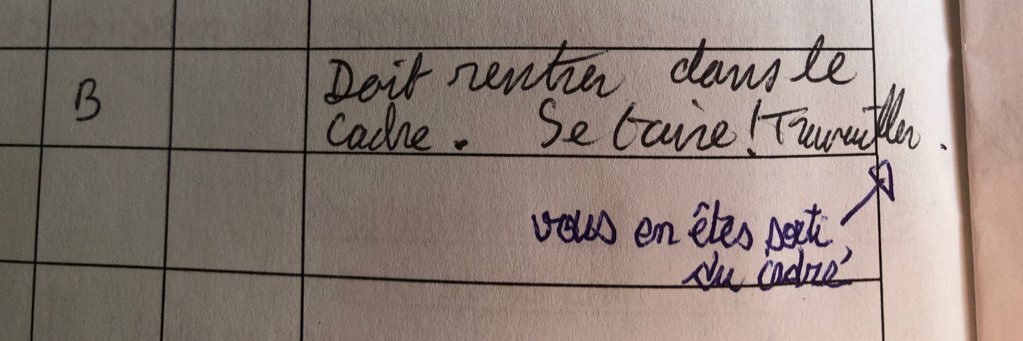 B
Doit rentrer dans le
Cadre. Se taire ! Travailler.
vous en êtes sorti
du cadre